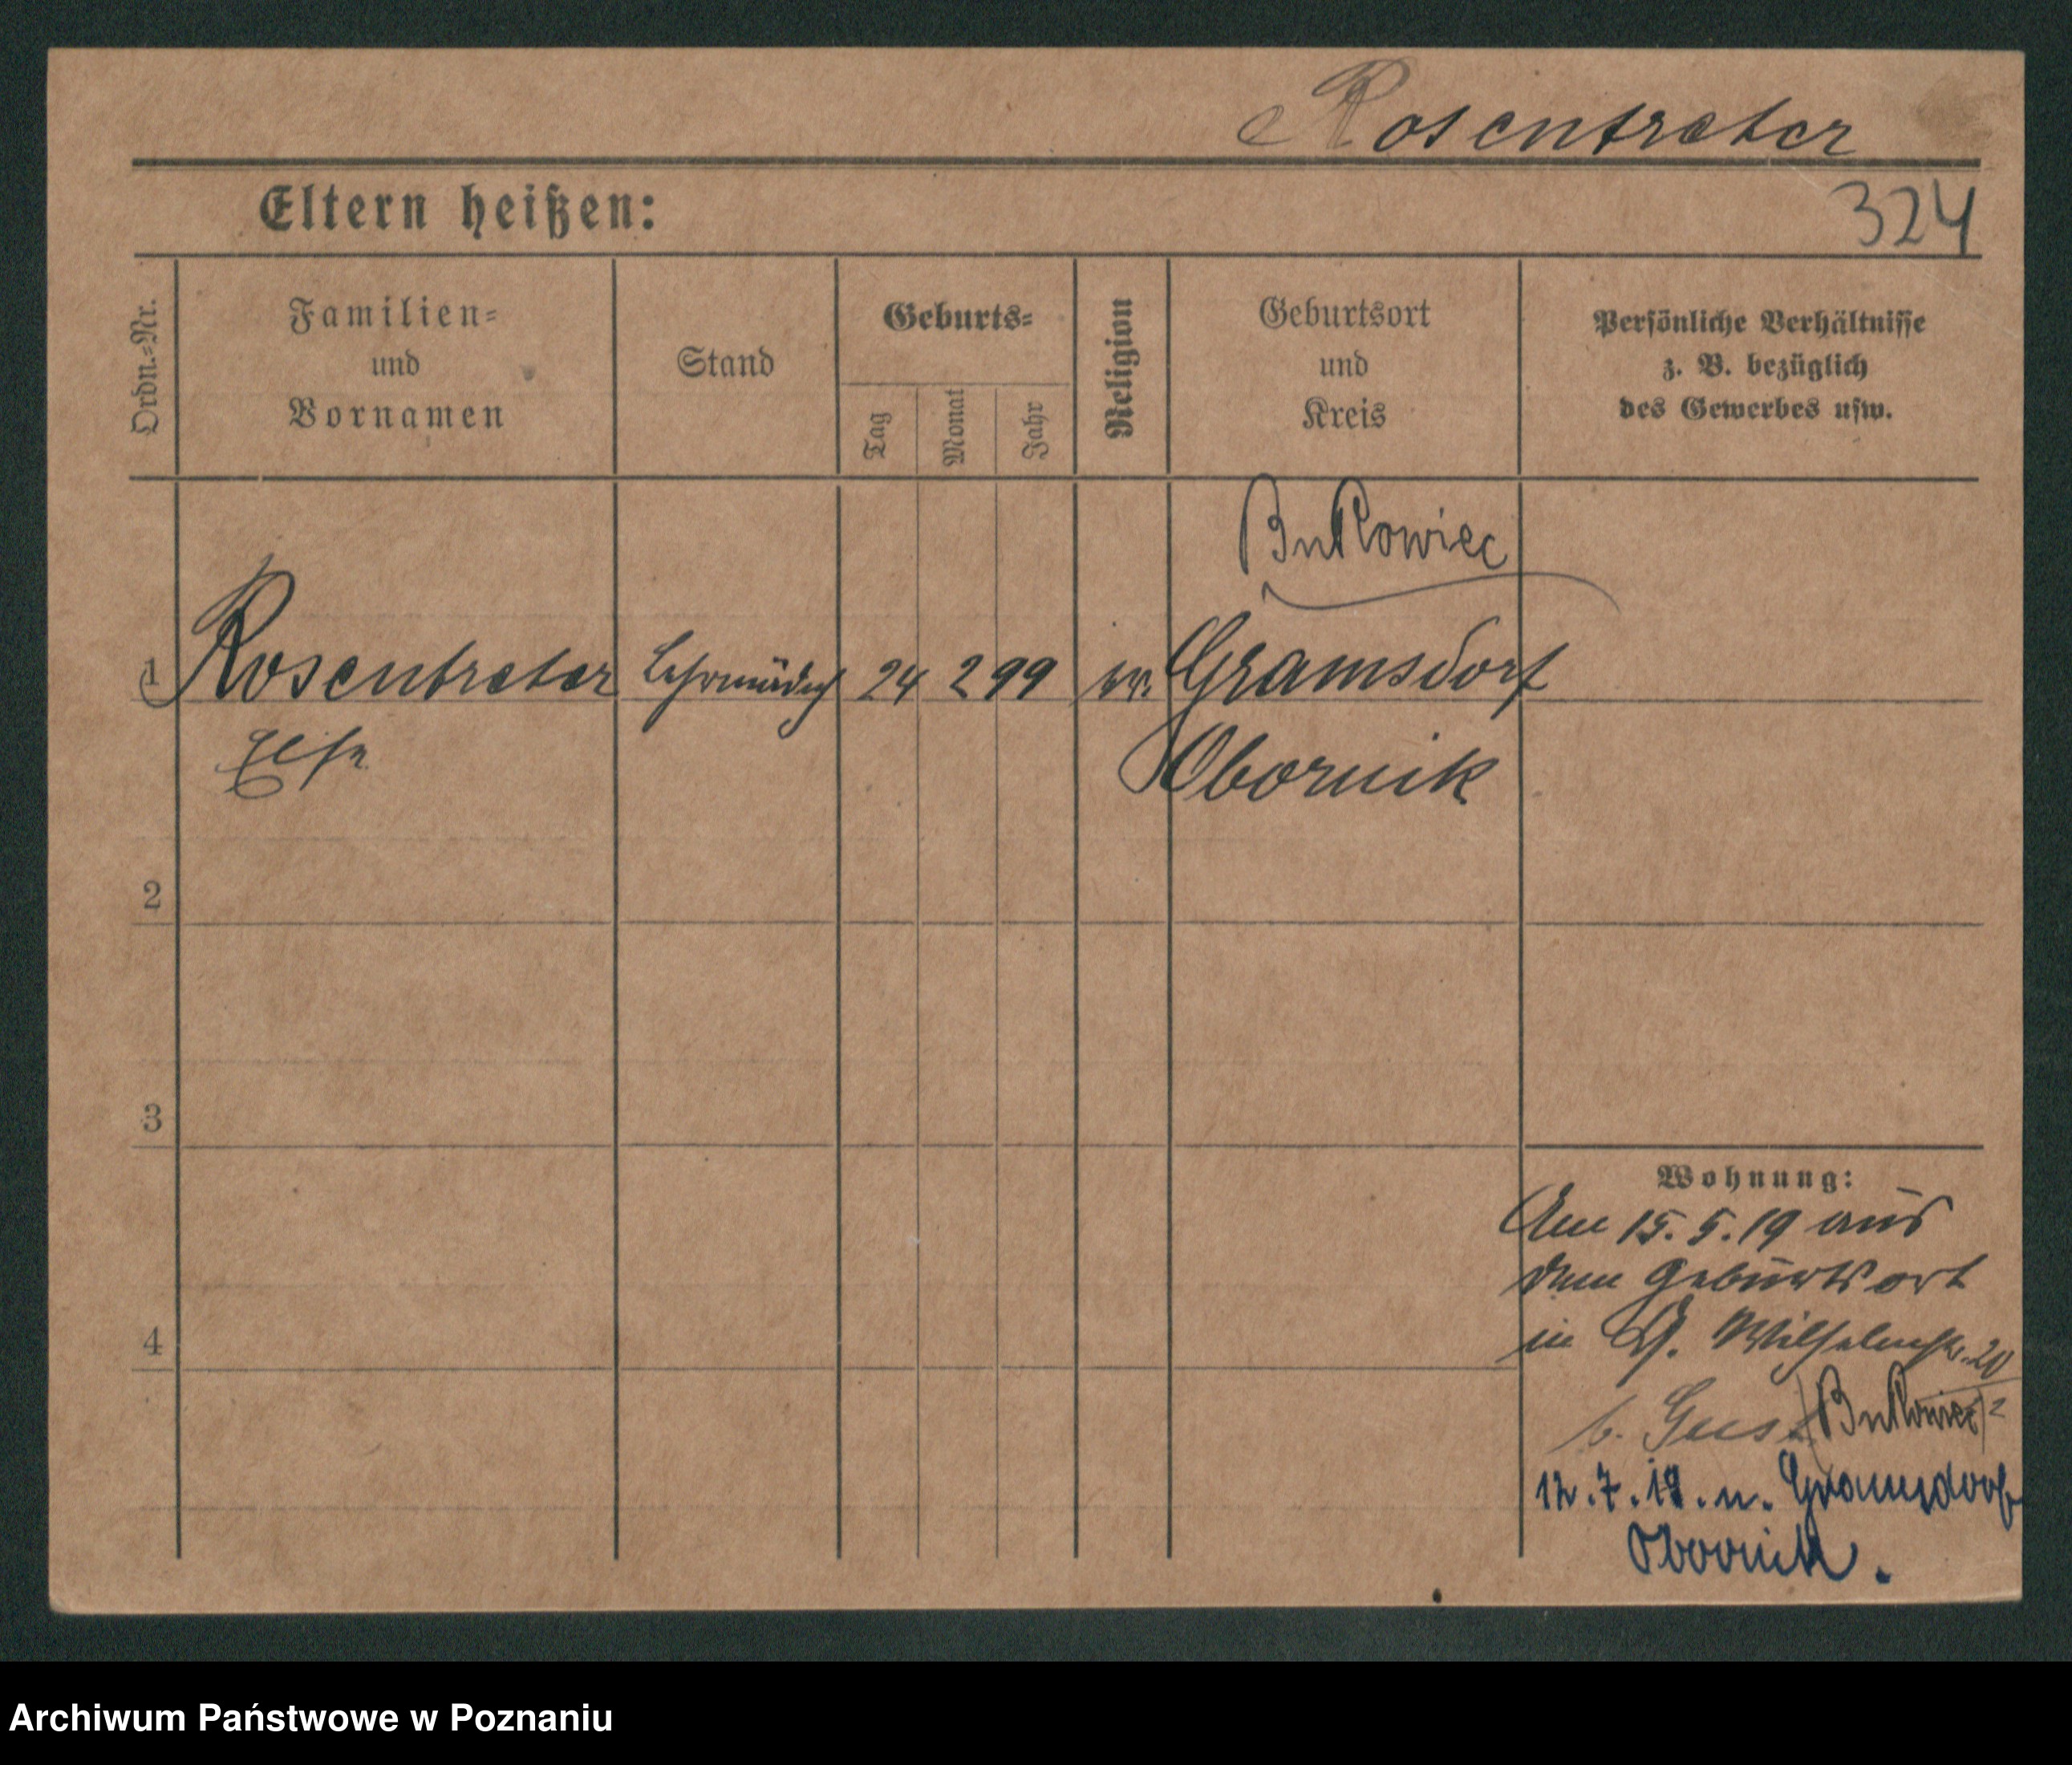 Rosentreter
Eltern heißen:
324
Ordn.-Nr.
Familien-
und
Vornamen
Stand
Geburts-
Tag
Monat
Jahr
Religion
Geburtsort
und
Kreis
Persönliche Verhältnisse
z. B. bezüglich
des Gewerbes usw.
Butkowiec
1 Rosentreter Lehrmädch 24 2 99 ev. Gramsdorf
Else
Obornik
2
3
4
Wohnung:
Am 15.5.19 aus
dem Geburtsort
in Wilhelmstr. 20
b. Butkowiec
12.7.19. n. Gramsdorf
Obornik.
Archiwum Państwowe w Poznaniu